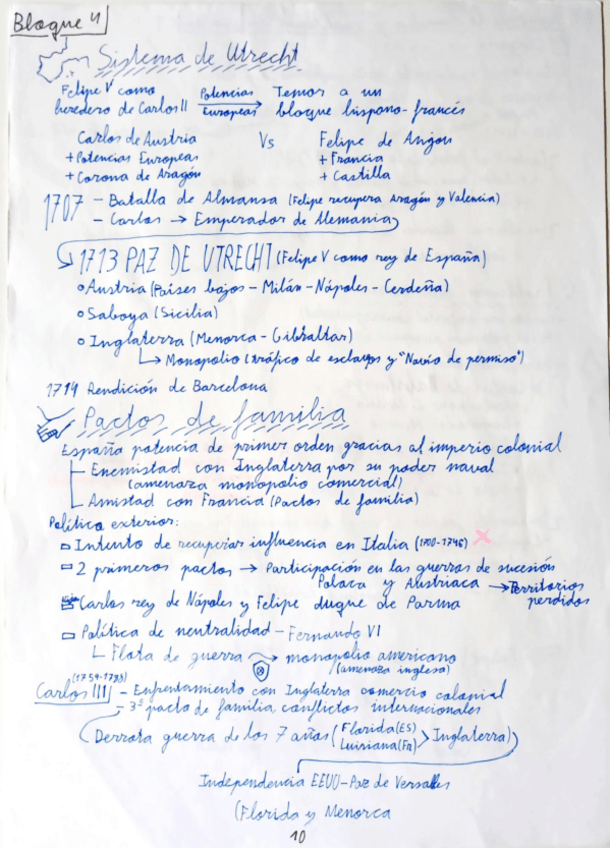 Bloque 4
Sistema de Utrecht
Felipe V como Potencias Temor a un
heredero de Carlos II Europeas bloque hispono-francés
Carlos de Austria Vs Felipe de Anjou
+ Potencias Europeas + Francia
+ Corona de Aragón + Castilla
1707 - Batalla de Almansa (Felipe recupera Aragón y Valencia)
- Carlos → Emperador de Alemania
1713 PAZ DE UTRECHT (Felipe V como rey de España)
Austria (Países bajos - Milán - Nápoles - Cerdeña)
Saboya (Sicilia)
Inglaterra (Menorca - Gibraltar)
Monopolio (tráfico de esclavos y "Navío de permiso")
1714 Rendición de Barcelona
Pactos de familia
España potencia de primer orden gracias al imperio colonial
Enemistad con Inglaterra por su poder naval
(amenaza monopolio comercial)
Amistad con Francia (Pactos de familia)
Política exterior:
Intento de recuperar influencia en Italia (1700-1746)
2 primeros pactos → Participación en las guerras de sucesión
Polaca y Austriaca → Territorios
perdidos
Carlos rey de Nápoles y Felipe duque de Parma
Política de neutralidad - Fernando VI
Flota de guerra monopolio americano
(amenaza inglesa)
(1759-1788)
Carlos III - Enfrentamiento con Inglaterra comercio colonial
- 3º pacto de familia conflictos internacionales
Derrota guerra de los 7 años (Florida (ES) Inglaterra)
Luisiana (Fr)
Independencia EEUU - Paz de Versalles
(Florida y Menorca
10